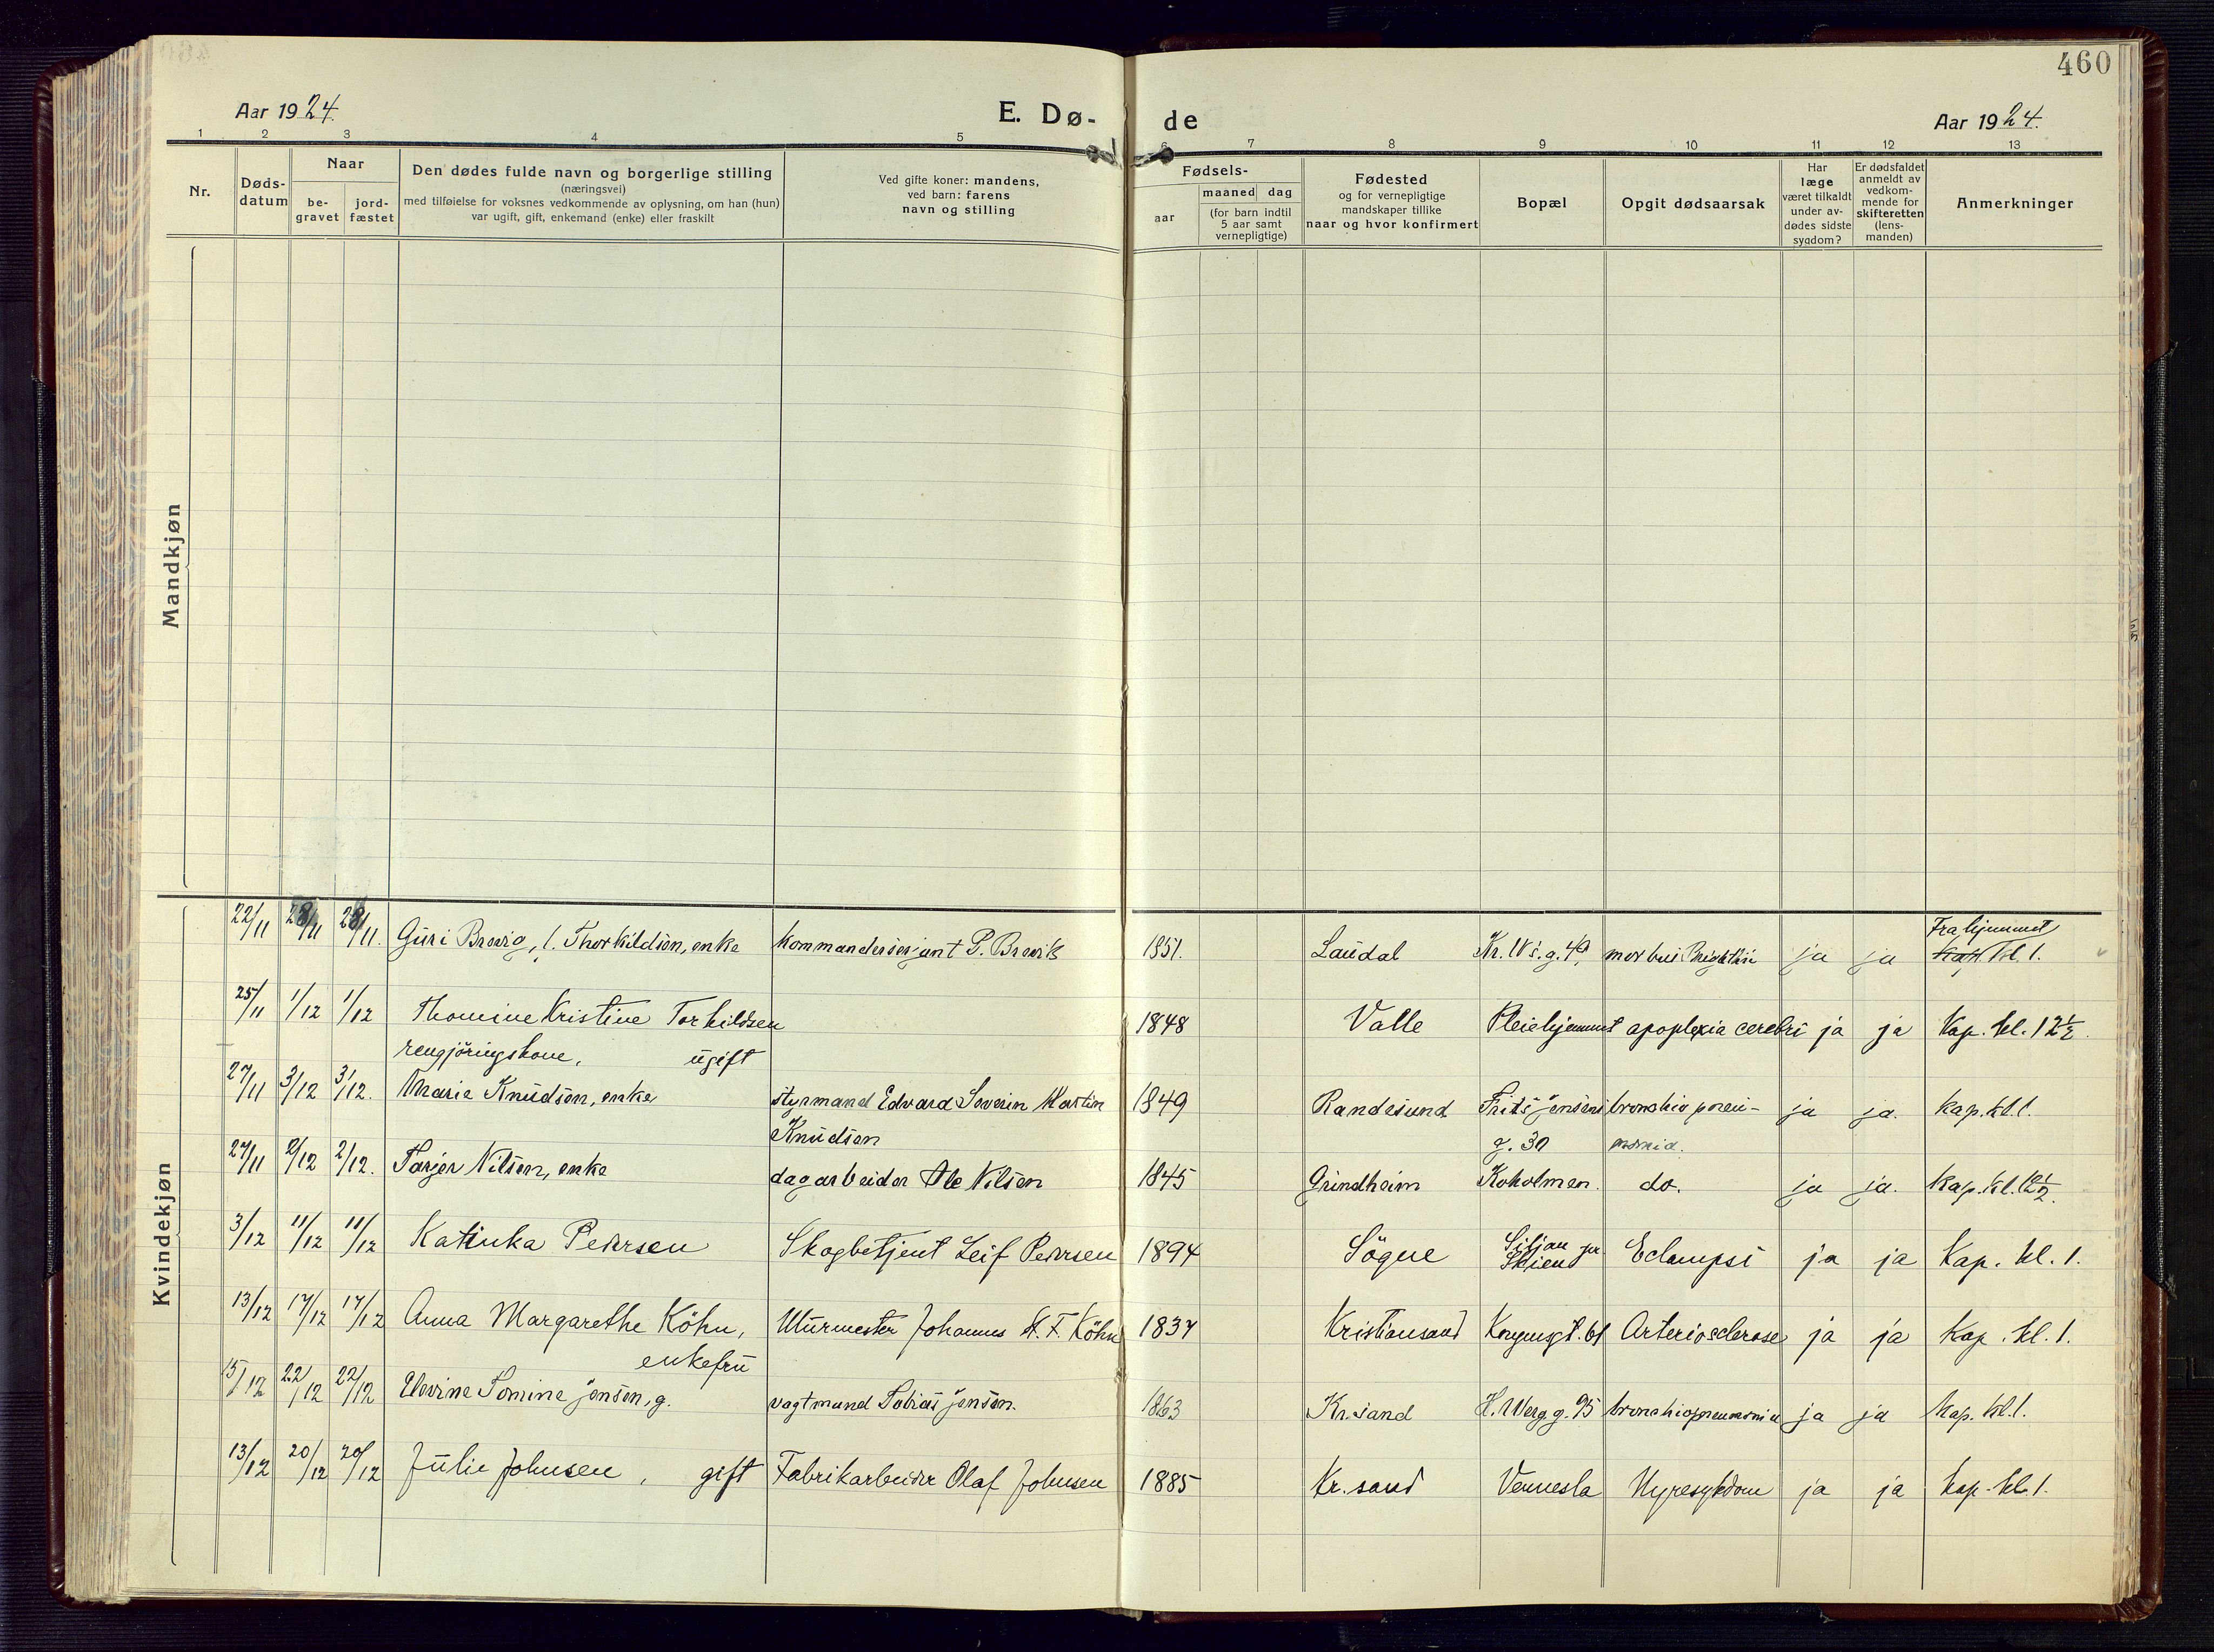 460
Aar 1924.
E. Dø-
de
Aar 1924.
1 2 3 4 5 6 7 8 9 10 11 12 13
Nr.
Døds-
datum
Naar
be-
gravet
jord-
fæstet
Den dødes fulde navn og borgerlige stilling
(næringsvei)
med tilføielse for voksnes vedkommende av oplysning, om han (hun)
var ugift, gift, enkemand (enke) eller fraskilt
Ved gifte koner: mandens,
ved barn: farens
navn og stilling
Fødsels-
aar
maaned dag
(for barn indtil
5 aar samt
vernepligtige)
Fødested
og for vernepligtige
mandskaper tillike
naar og hvor konfirmert
Bopæl
Opgit dødsaarsak
Har
læge
været tilkaldt
under av-
dødes sidste
sygdom?
Er dødsfaldet
anmeldt av
vedkom-
mende for
skifteretten
(lens-
manden)
Anmerkninger
Mandkjøn
Kvindekjøn
Fra hjemmet
22/11 28/11 28/11. Guri Brevig, f. Thorkildsen, enke kommandersergant P. Brevik 1851. Laudal Kr. IVs. g. 49, morbus Brightii ja ja Kap. kl. 1.
25/11 1/12 1/12 Thomine Kristine Torkildsen 1848 Valle Pleiehjemmet apoplexia cerebri ja ja Kap. kl. 12½.
rengjöringskone, ugift
27/11 3/12 3/12. Marie Knudsen, enke styrmand Edvard Severin Martin 1849 Randesund Frits Jensens bronchio pneu- ja ja. Kap. kl. 1.
Knudsen g. 30 monia.
27/11 2/12 2/12. Tarjer Nilsen, enke dagarbeider Ole Nilsen 1845 Grindheim Koholmen. do. ja ja. Kap. kl. 12½.
3/12 11/12 11/12 Katinka Pedersen Skogbetjent Leif Pedersen 1894 Sögne Siljan pr Skien Eclampsi ja ja Kap. kl. 1.
13/12 17/12 17/12 Anna Margarethe Köhn, Murmester Johannes H. F. Köhn 1837 Kristiansand Kongensgt. 61 Arteriosclerose ja ja Kap. kl. 1.
enkefru
15/12 22/12 22/12 Elevine Tomine Jensen, g. vagtmand Tobias Jensen. 1863 Kr.sand H. Werg. g. 95 bronchiopneumonia ja ja Kap. kl. 1.
13/12 20/12 20/12 Julie Johnsen, gift Fabrikarbeider Olaf Johnsen 1885 Kr. sand Vennesla Nyresykdom ja ja Kap. kl. 1.